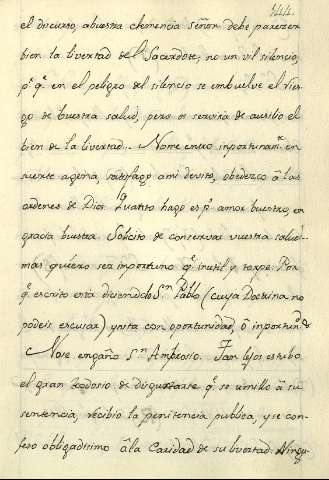 144.
el ducurso, abuestra clemencia señor debe parezer
bien la livertad del Sacerdote, no un vil silencio,
p.r q.e en el peligro del silencio se embuelve el ries-
go de buestra salud, pero os servira de ausilio el
bien de la livertad.. Nome entro inportunam.te en
suerte agena, satisfago ami devito, obedezco â las
ordenes de Dios. Quanto hago es p.r amor buestro, en
gracia buestra. Solicito de conservar vuestra salud
más quiero ser inportuno q.e inutil y torpe. Por
q.e escrito está diciendo S.n Pablo (cuya Doctrina no
podeis escusar) ynsta con oportunidad, ô inportun.d
Nose engañó S.n Ambrosio. Tan lejos estubo
el gran Teodosio de disgustarse q.e se umilló â su
sentencia, recibio la penitencia publica, y se con-
fesó obligadisimo â la Caridad de su livertad. Ningu-